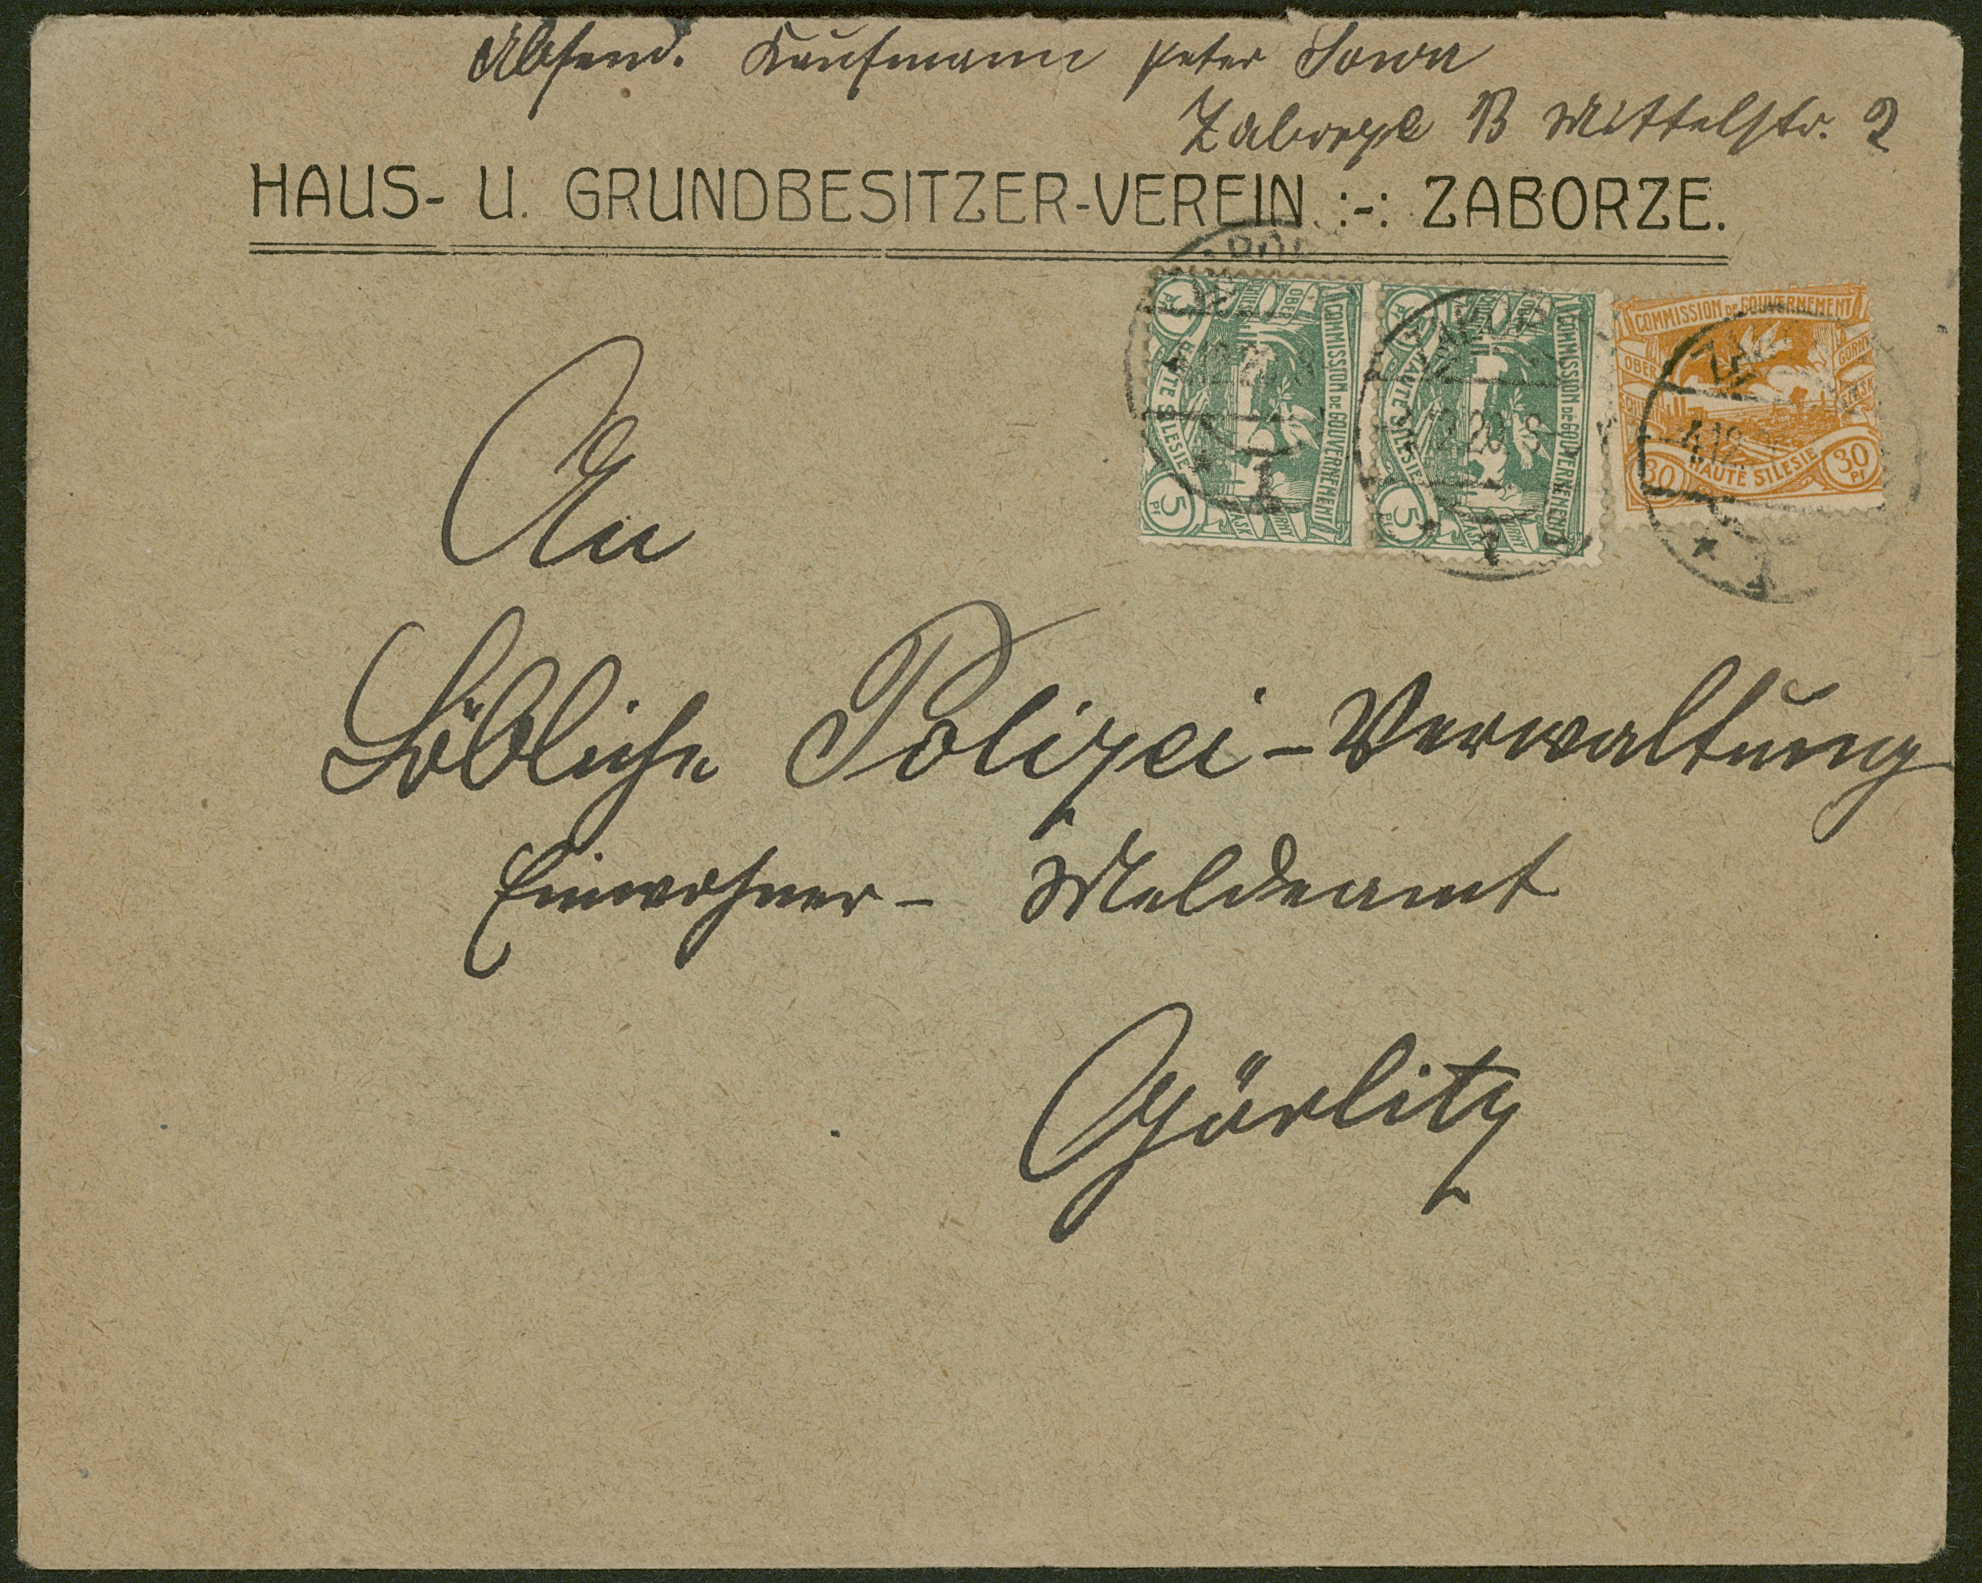 Absend. Kaufmann Peter Sowa
Zaborze B Mittelstr. 2
HAUS- U. GRUNDBESITZER-VEREIN :-: ZABORZE.
COMMISSION DE GOUVERNEMENT
HAUTE SILESIE
5 Pf
COMMISSION DE GOUVERNEMENT
HAUTE SILESIE
5 Pf
COMMISSION DE GOUVERNEMENT
HAUTE SILESIE
30 30 Pf
An
Löbliche Polizei-Verwaltung
Einwohner- Meldeamt
Görlitz